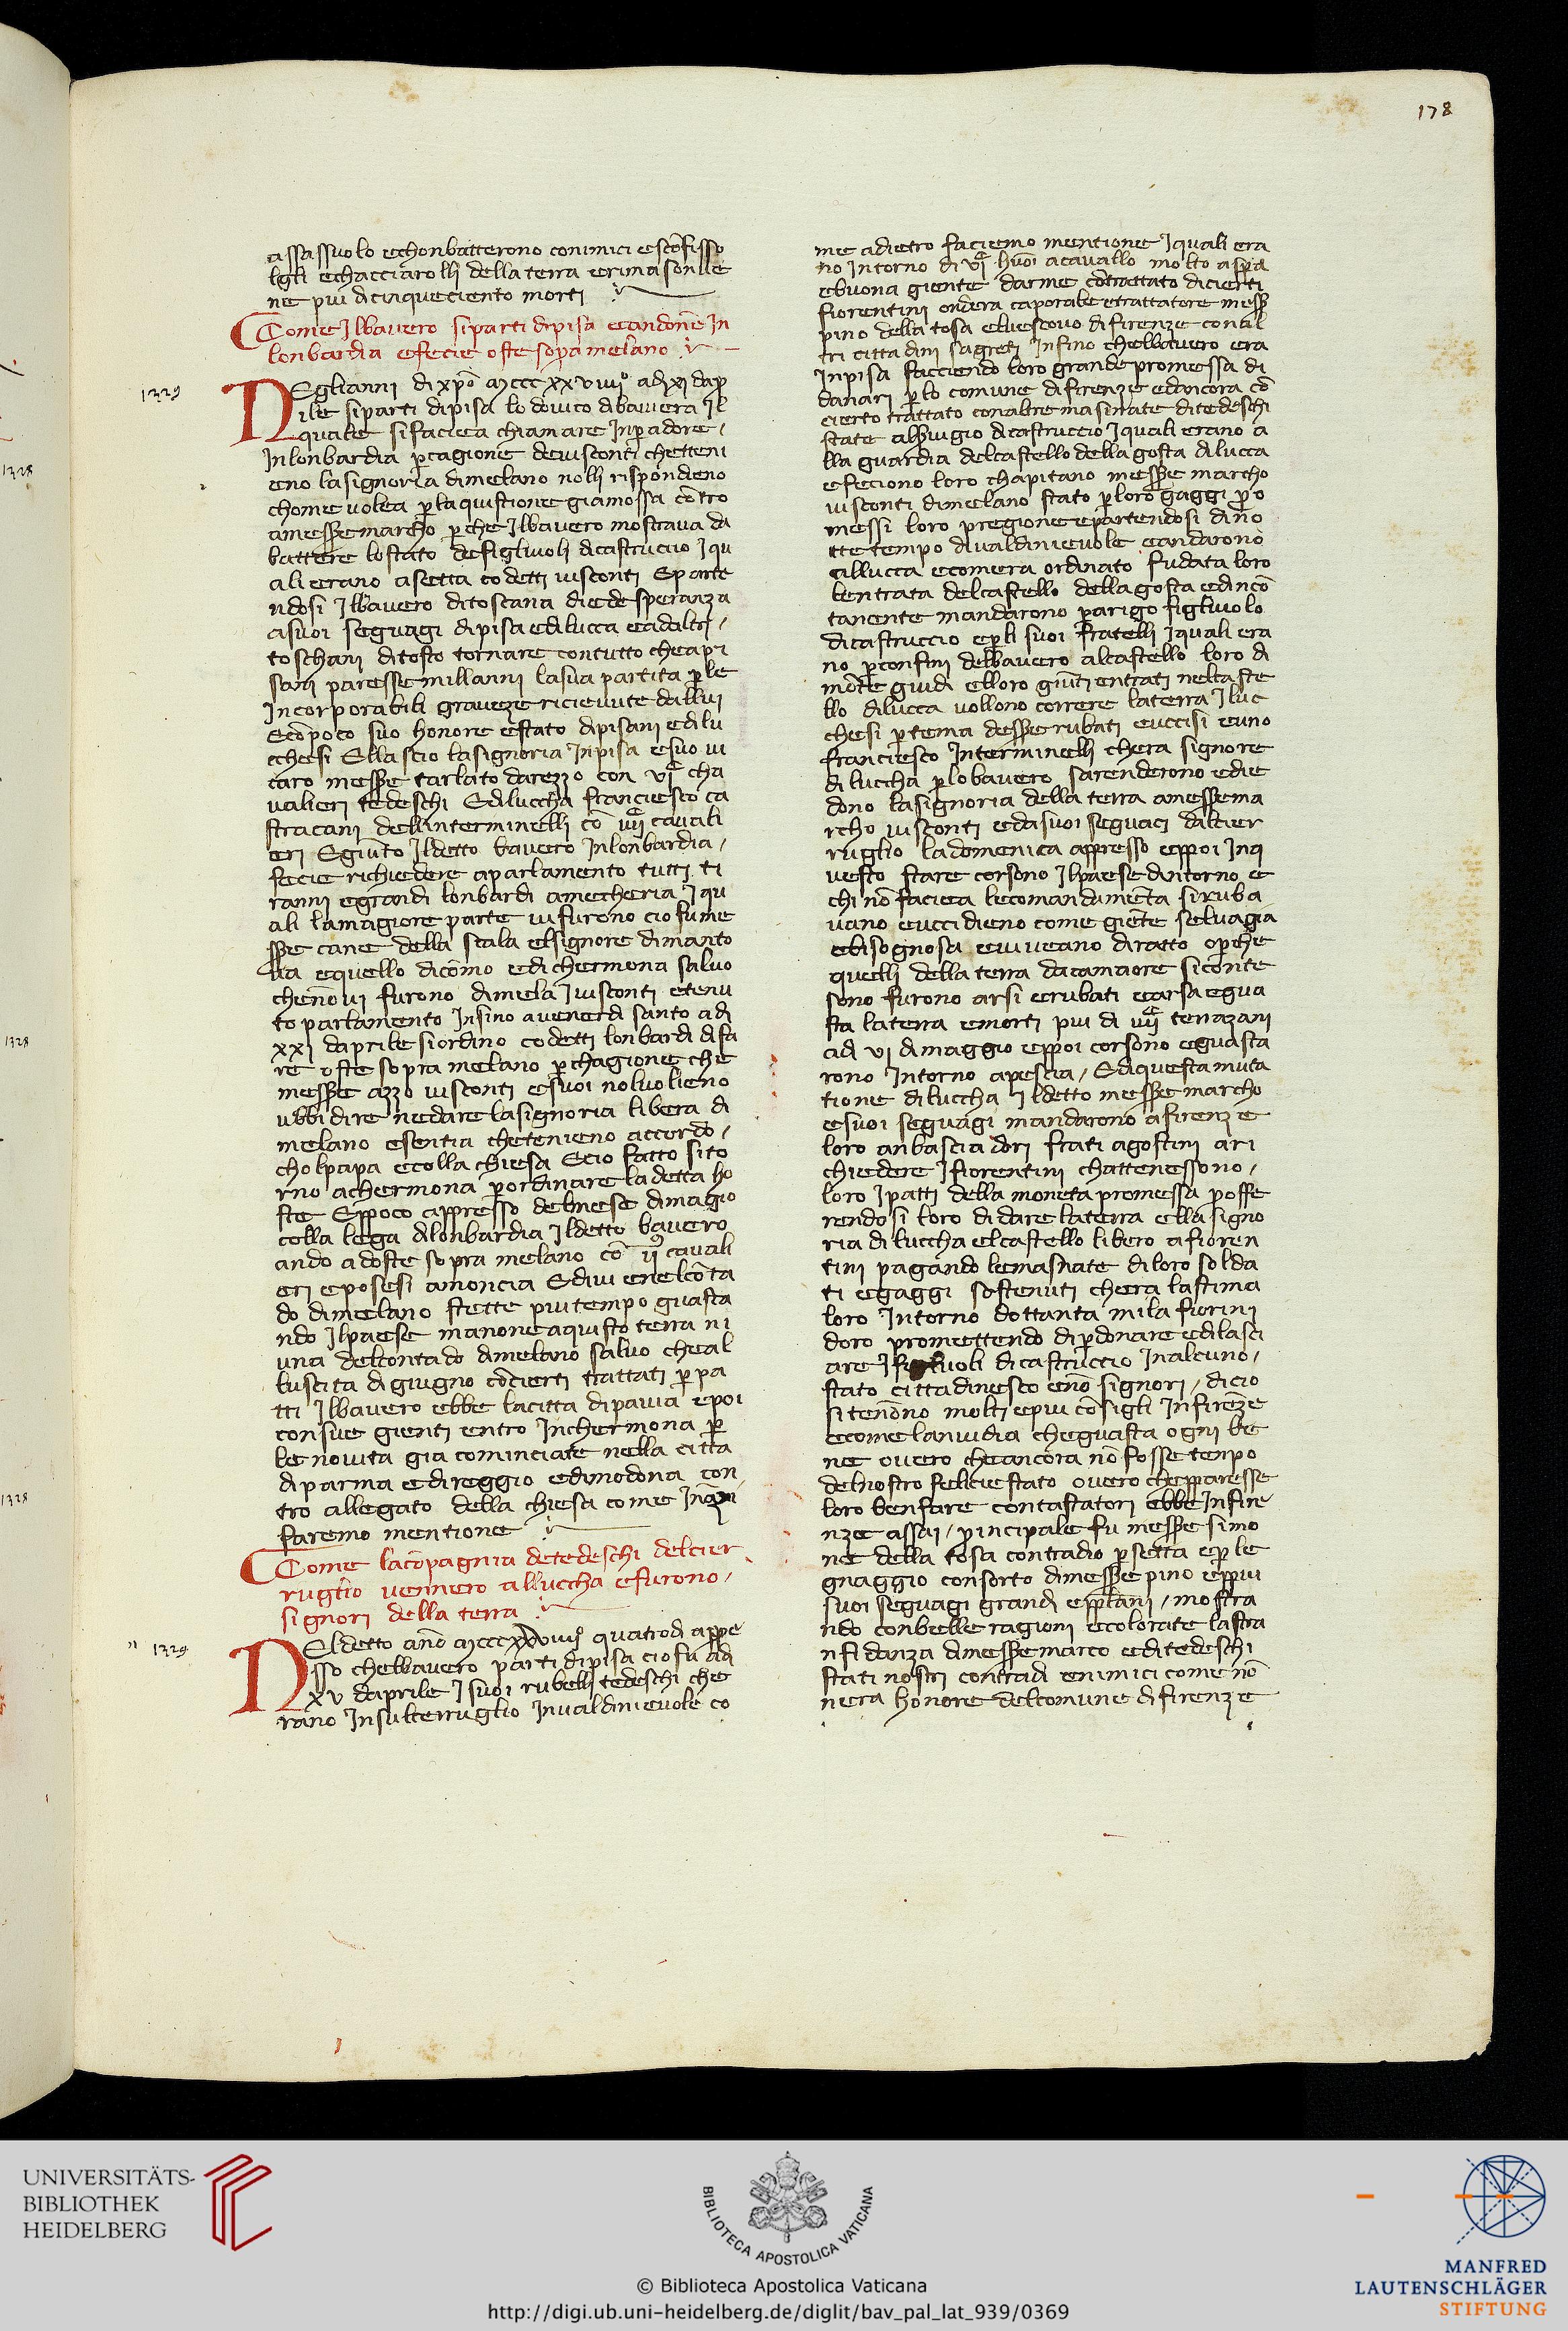 178
assassuolo echonbatterono conimici esco͂fisso
lgli echacciarolli della terra erimasonue
ne piu dicinqueciento morti
Come Jlbavero siparti dipisa eandone͂ In
lonbardia efecie oste sop̲a melano
1329
NEglianni di xp̅o mcccxxviiijº adi xj dap̲
ile siparti dipisa lo dovico dibavera Jl
quale sifaciea chiamare Inp̲adore /
Inlonbardia p̲cagione deuisconti chetteni
eno lasignoria dimelano nolli rispondieno
chome volea p̲laquistione giamossa co͂tro
amess̲e marcho p̲che Jlbavero mostrava da
battere lostato de figliuoli dicastruccio J qu
ali erano asetta co detti uisconti E parte
ndosi Jlbavero ditoscana diede speranza
asuoi seguagi dipisa edilucca eadaltri /
toschani ditosto tornare contutto cheapi
sani paresse millanni lasua partita p̲le
Incorporabili graveze ricievute dallui
Eco͂ poco suo honore estato dipisani edilu
cchesi Ellascio lasignoria Inpisa esuo ui
caro mess̲e tarlato darezzo con vjᶜ cha
valieri tedeschi Ediluccha franciesco ca
stracani dellinterminelli co͂ iiijᶜ cavali
eri E giu͂to Jldetto bavero Inlonbardia /
fecie richiedere aparlamento tutti ti
ranni egrandi lonbardi amecheria J qu
ali lamagiore parte uifurono cio fu me
ss̲e cane della scala elsignore dimanto
va equello dico͂mo edichermona salvo
cheno͂ui furono dimela J uisconti etenu
to parlamento Insino avenerdi santo adi
1328
xxj daprile siordino co detti lonbardi difa
re oste sopra melano p̲chagione che
mess̲e azzo uisconti esuoi nolvolieno
ubbidire nedare lasignoria libera di
melano esentia chetenieno accordo /
cholpapa ecolla chiesa Ecio fatto sito
rno achermona p̲ordinare ladetta ho
ste Eppoco appresso delmese dimagio
colla lega dilonbardia Jldetto bavero
ando adoste sopra melano co͂ ijᵐ cavali
eri eposesi amoncia Ediui enelco͂ta
do dimelano stette piutempo guasta
ndo Jlpaese manoneaquisto terra ni
una delcontado dimelano salvo cheal
luscita digiugno co͂cierti trattati p̲pa
tti Jlbavero ebbe lacitta dipavia epoi
consue gienti entro Inchermona p̲
le novita gia cominciate nella citta
diparma edireggio edimodona con
tro allegato della chiesa come Ina͂zi
faremo mentione
Come laco͂pagnia detedeschi delcier
ruglio vennero alluccha efurono /
signori della terra
1329
NEldetto an̅o mcccxxviiijº quatrodi app̲e
sso chelbavero parti dipisa cio fu adi
xv daprile J suoi rubelli tedeschi che
rano Insulcerruglio Invaldinievole co
me adietro faciemo mentione J quali era
no Intorno di vjᶜ huo͂i acavallo molto asp̲a
ebuona giente darme co͂trattato dicierti
fiorentini ondera caporale etrattatore mess̲
pino della tosa eluescovo difirenze conal
tri cittadini sagreti Infino chelbavero era
Inpisa facciendo loro grande promessa di
danari p̲lo comune difirenze edancora co͂
cierto trattato conaltre masinate ditedeschi
state als̲uigio dicastruccio J quali erano a
lla guardia delcastello della gosta dilucca
efeciono loro chapitano mess̲e marcho
uisconti dimelano stato p̲loro gaggi p̲o
messi loro pregione epartendosi dino
tte tempo divaldinievole eandarono
allucca ecomera ordinato fudata loro
lentrata delcastello della gosta edinco͂
tanente mandarono p̲arigo figliuolo
dicastruccio ep̲li suoi fratelli J quali era
no p̲confini delbavero alcastello loro di
mo͂te guidi elloro giu͂ti entrati nelcaste
llo dilucca vollono correre laterra J luc
chesi p̲tema dess̲e rubati euccisi euno
franciesco Interminelli chera signore
diluccha p̲lobavero sarenderono edie
dono lasignoria della terra amess̲ema
rcho uisconti edasuoi seguaci dalcier
ruglio ladomenica appresso eppoi Inq
uesto stare corsono Jlpaese dintorno e
chi no͂ faciea lecomandamenta siruba
vano euccidieno come gie͂te selvagia
ebisognosa euiveano diratto op̲che
quelli della terra dacamaiore siconte
sono furono arsi erubati earsa egua
sta laterra emorti piu di iiijᶜ terrazani
adi vj dimaggio eppoi corsono eguasta
rono Intorno apescia / Ediquesta muta
tione diluccha Jldetto mess̲e marcho
esuoi seguagi mandarono afirenze
loro anbasciadori frati agostini ari
chiedere J fiorentini chattenessono /
loro J patti della moneta promessa p̲offe
rendosi loro didare laterra ella signo
ria diluccha elcastello libero afioren
tini pagando lemasnate diloro solda
ti egaggi sostenuti chera lastima
loro Intorno dottanta mila fiorini
doro promettendo dip̲donare edilasci
are J figliuoli dicastruccio Inalcuno /
stato cittadinesco eno͂ signori / dicio
siteno͂no molti epiu co͂sigli Infirenze
ecome lanuidia cheguasta ogni be
ne overo cheancora no͂ fosse tenpo
delnostro felicie stato overo cheppraresse
loro benfare contastatori ebbe Infire
nze assai / p̲incipale fu mess̲e simo
ne della tosa contradio p̲setta ep̲le
gnaggio consorto dimess̲e pino eppiu
suoi seguagi grandi eppla͂ni / mostra
ndo conbelle ragioni ecolorate lastra
nfidanza dimess̲e marco editedeschi
stati nostri contradi enimici come no͂
nera honore delcomune difirenze
1328
1328
UNIVERSITÄTS-
BIBLIOTHEK
HEIDELBERG
BIBLIOTECA APOSTOLICA VATICANA
© Biblioteca Apostolica Vaticana
http://digi.ub.uni-heidelberg.de/diglit/bav_pal_lat_939/0369
MANFRED
LAUTENSCHLÄGER
STIFTUNG